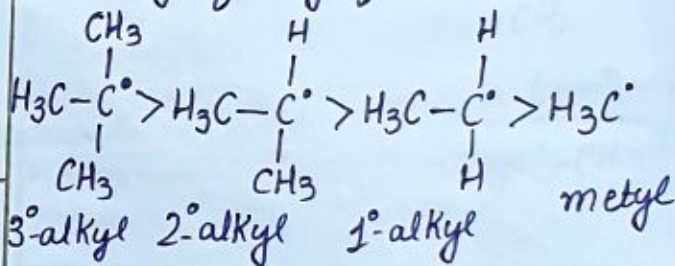 CH3 H H
H3C-C•>H3C-C•>H3C-C•>H3C•
CH3 CH3 H
3°-alkyl 2°-alkyl 1°-alkyl metyl